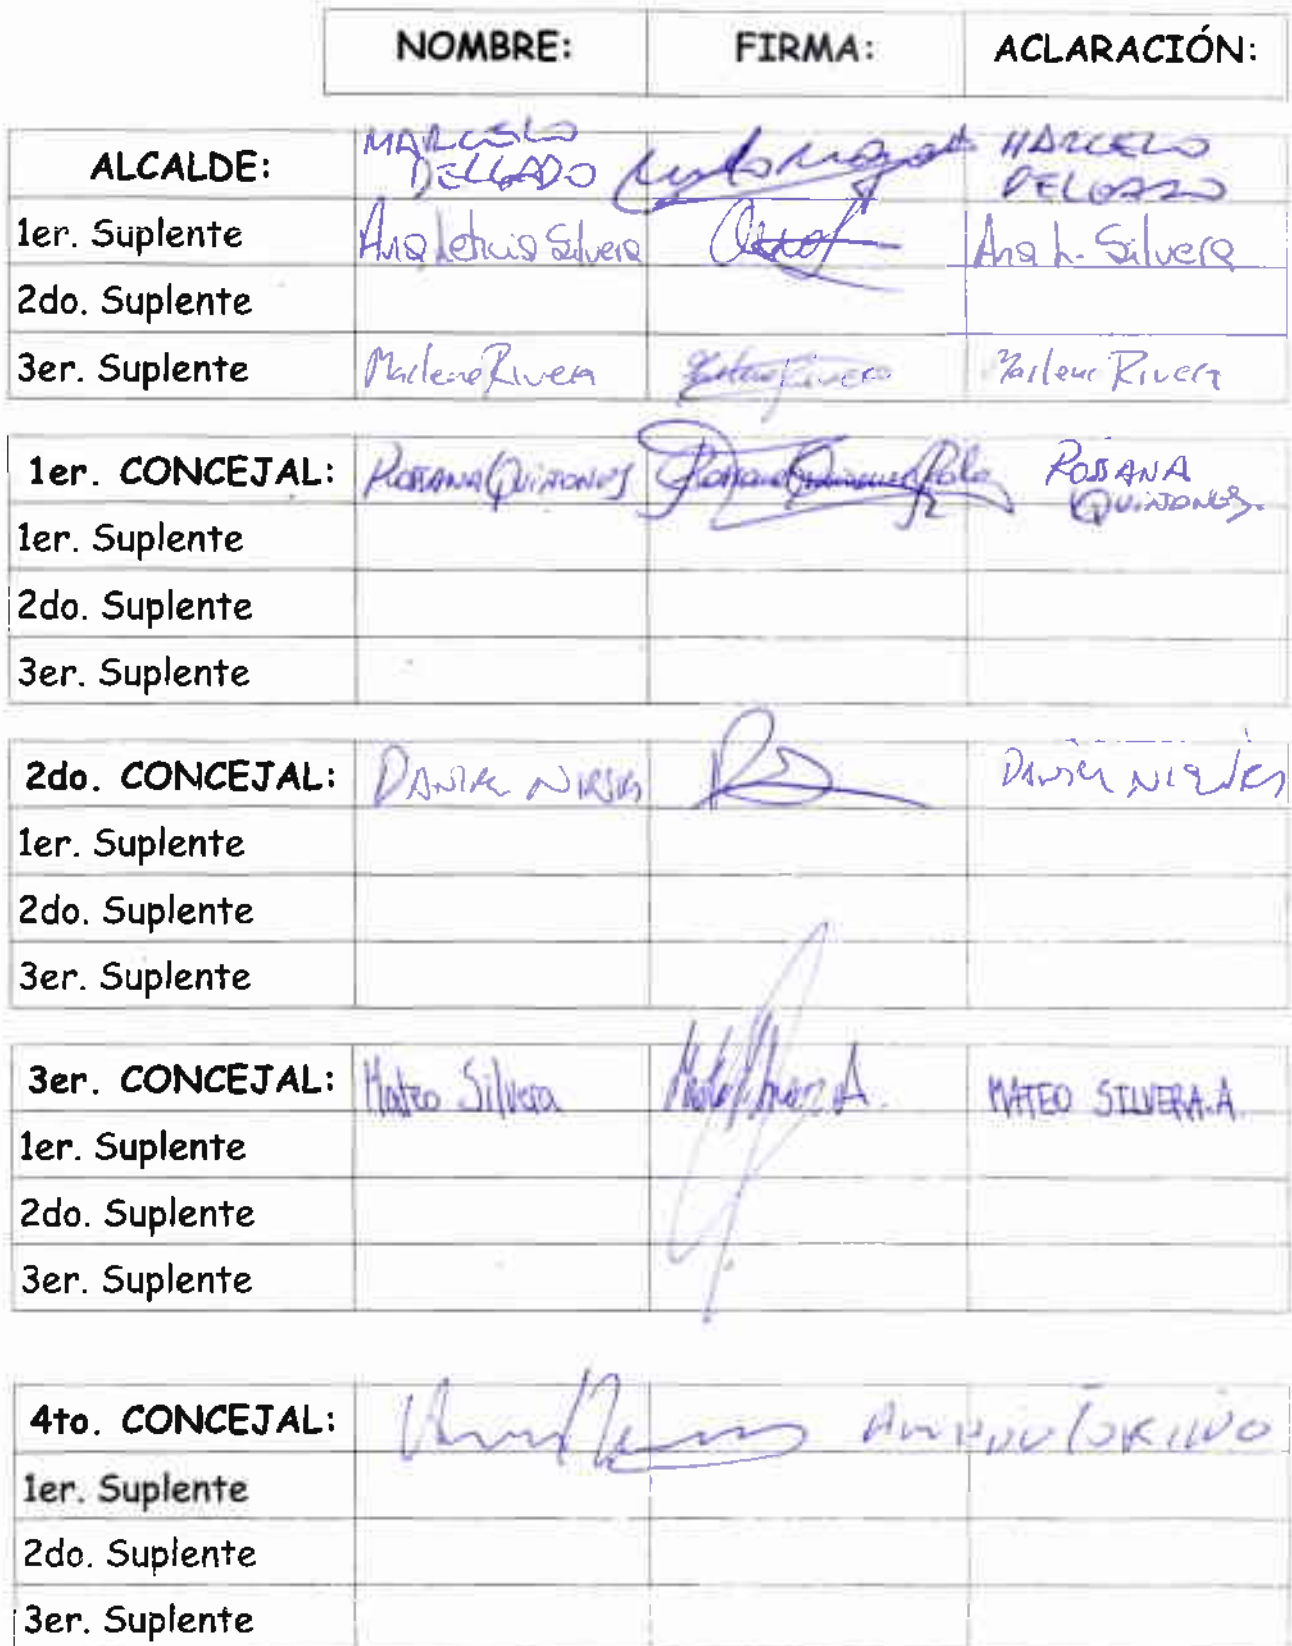 NOMBRE: FIRMA: ACLARACIÓN:
ALCALDE: MARCELO DELGADO MARCELO DELGADO
1er. Suplente Ana Leticia Silvera Ana L. Silvera
2do. Suplente
3er. Suplente Marlene Rivera Marlene Rivera Marlene Rivera
1er. CONCEJAL: ROSSANA QUIÑONES ROSSANA QUIÑONES.
1er. Suplente
2do. Suplente
3er. Suplente
2do. CONCEJAL: DANIEL DANIEL
1er. Suplente
2do. Suplente
3er. Suplente
3er. CONCEJAL: Mateo Silvera MATEO SILVERA.A.
1er. Suplente
2do. Suplente
3er. Suplente
4to. CONCEJAL:
1er. Suplente
2do. Suplente
3er. Suplente